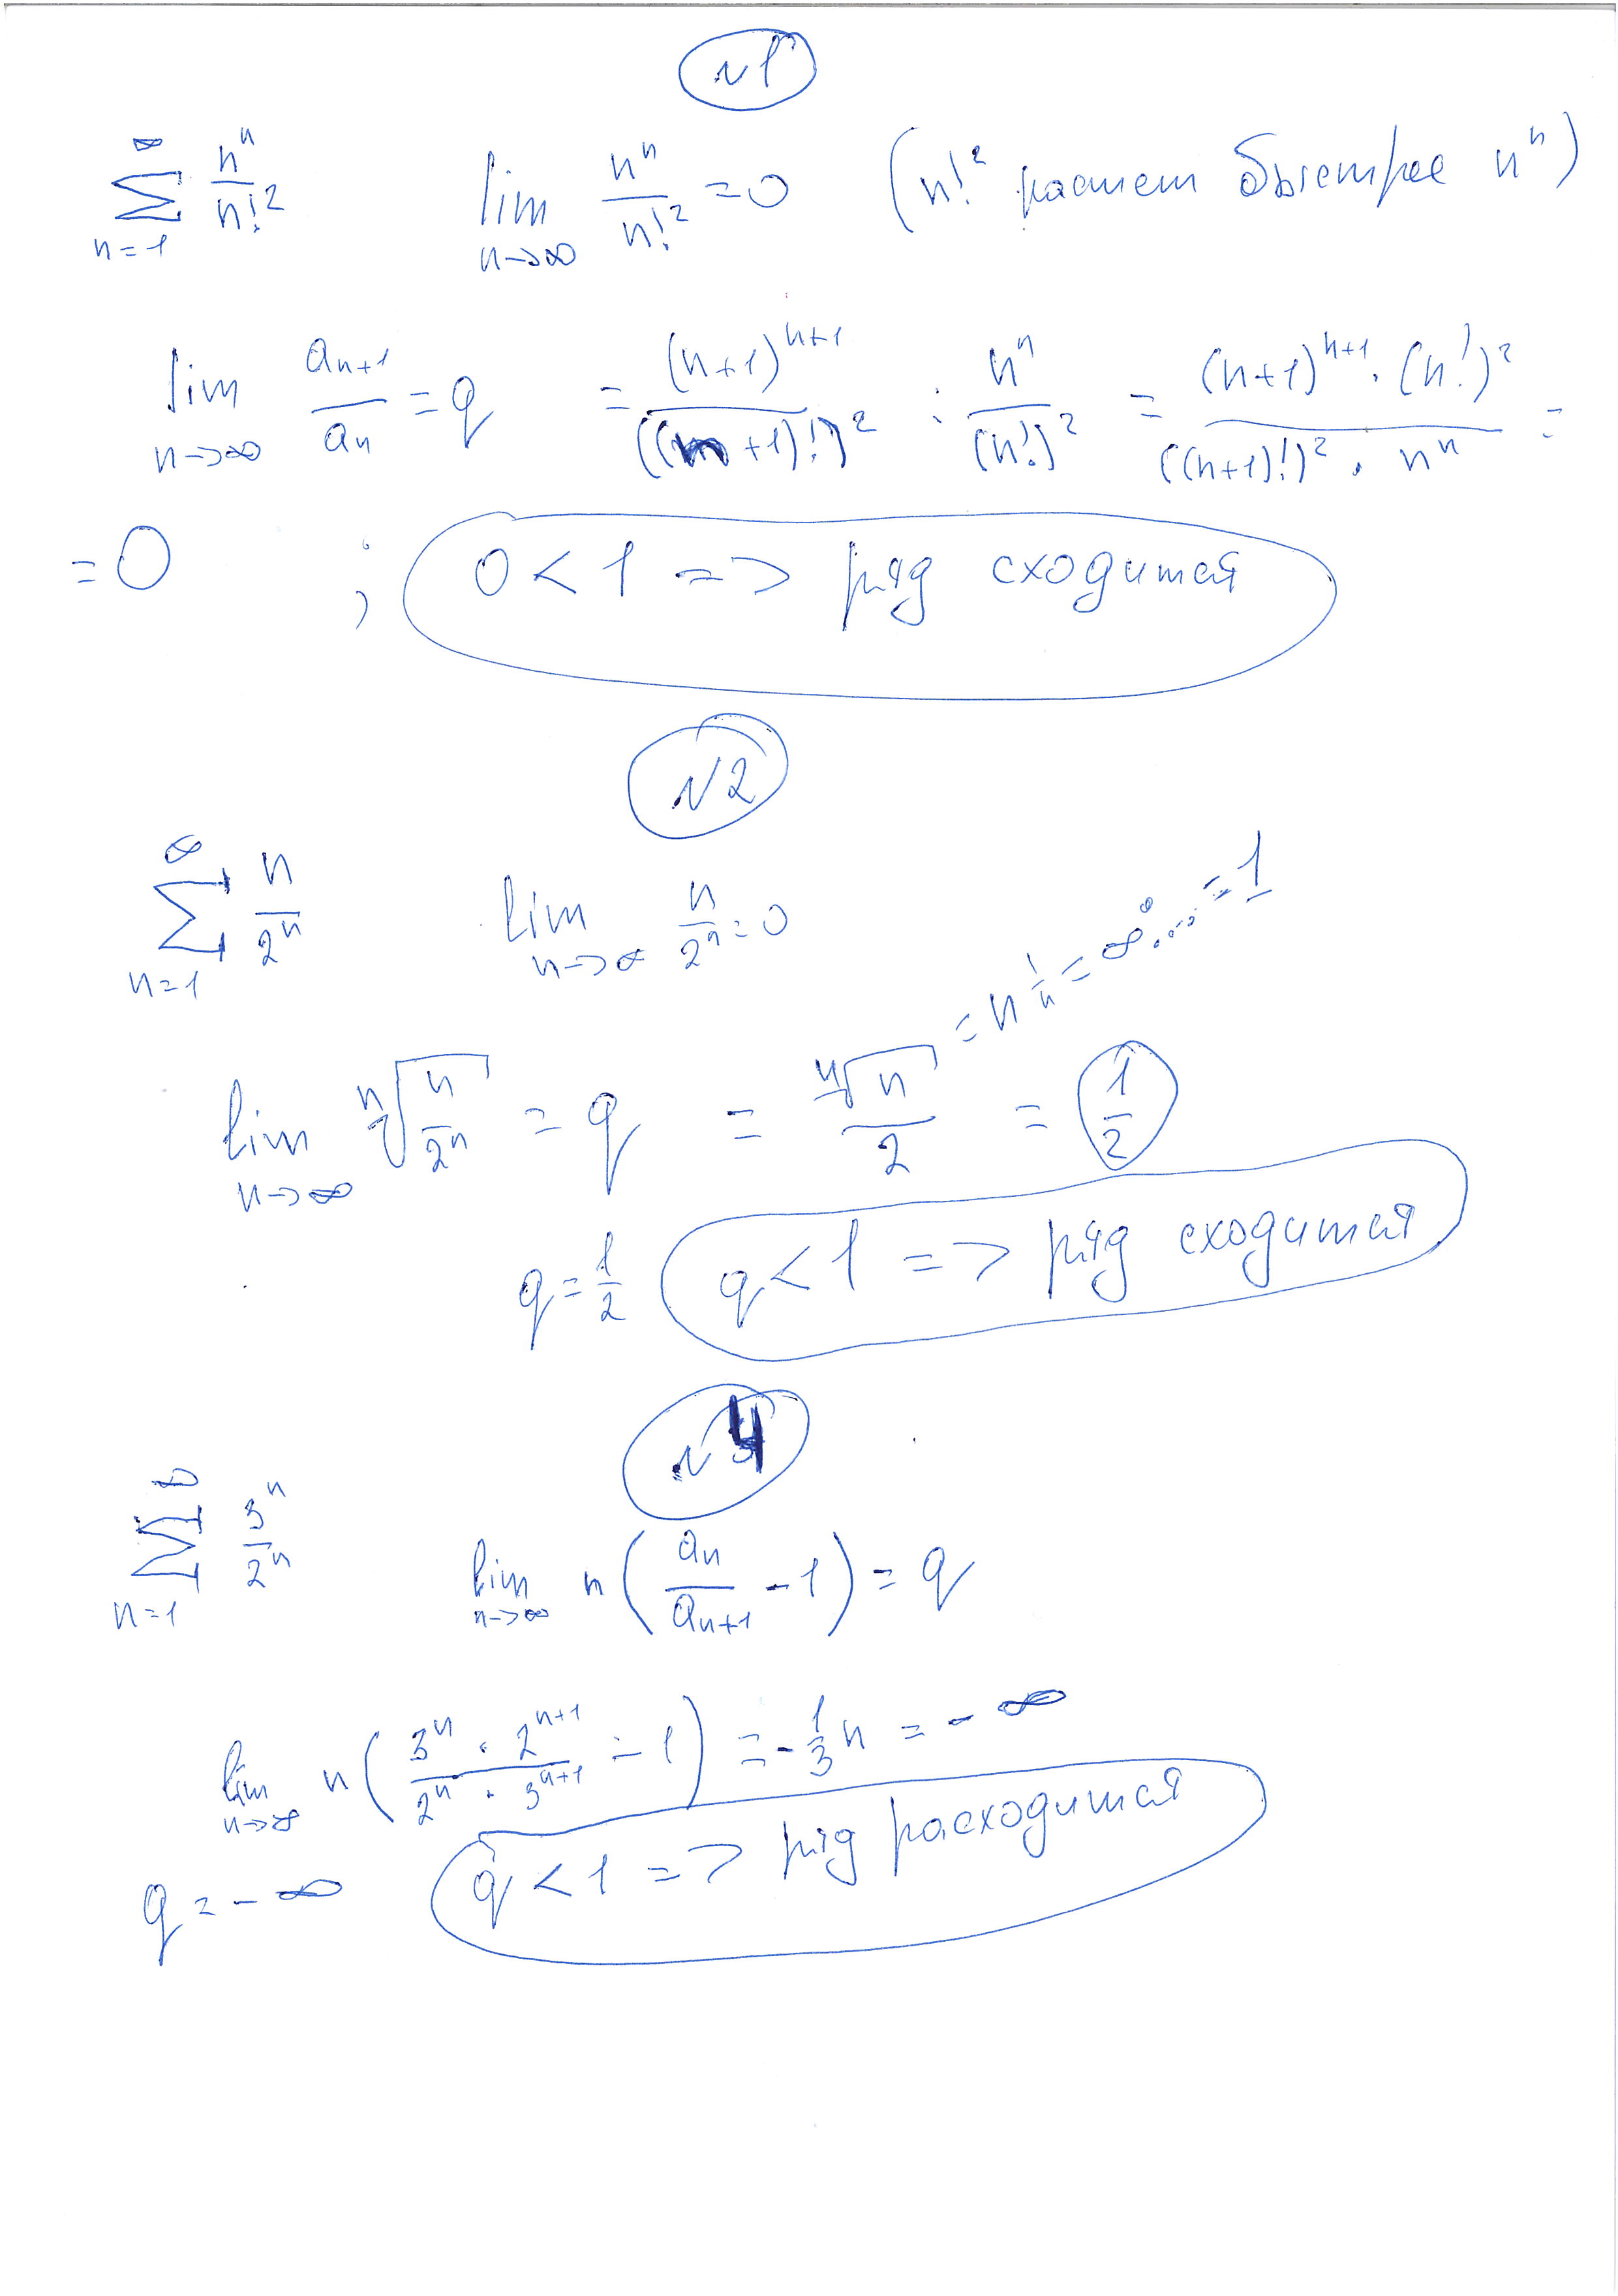 №1
∞ ∑ n=1 nⁿ/n!² lim n→∞ nⁿ/n!² = 0 (n!² растет быстрее nⁿ)
lim n→∞ aₙ₊₁/aₙ = q = (n+1)ⁿ⁺¹/((n+1)!)² : nⁿ/(n!)² = (n+1)ⁿ⁺¹·(n!)²/((n+1)!)²·nⁿ =
= 0 ; 0 < 1 => ряд сходится
№2
∞ ∑ n=1 n/2ⁿ lim n→∞ n/2ⁿ = 0
lim n→∞ ⁿ√(n/2ⁿ) = q = ⁿ√n/2 = 1/2
= n^(1/n) = ∞⁰... = 1
q = 1/2 q < 1 => ряд сходится
№4
∞ ∑ n=1 3ⁿ/2ⁿ lim n→∞ n(aₙ/aₙ₊₁ - 1) = q
lim n→∞ n(3ⁿ·2ⁿ⁺¹/2ⁿ·3ⁿ⁺¹ - 1) = -1/3 n = -∞
q = -∞ q < 1 => ряд расходится